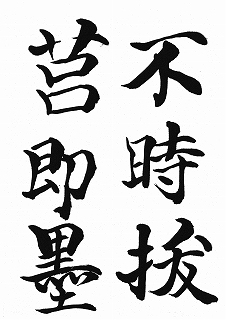 不時拔
莒即墨